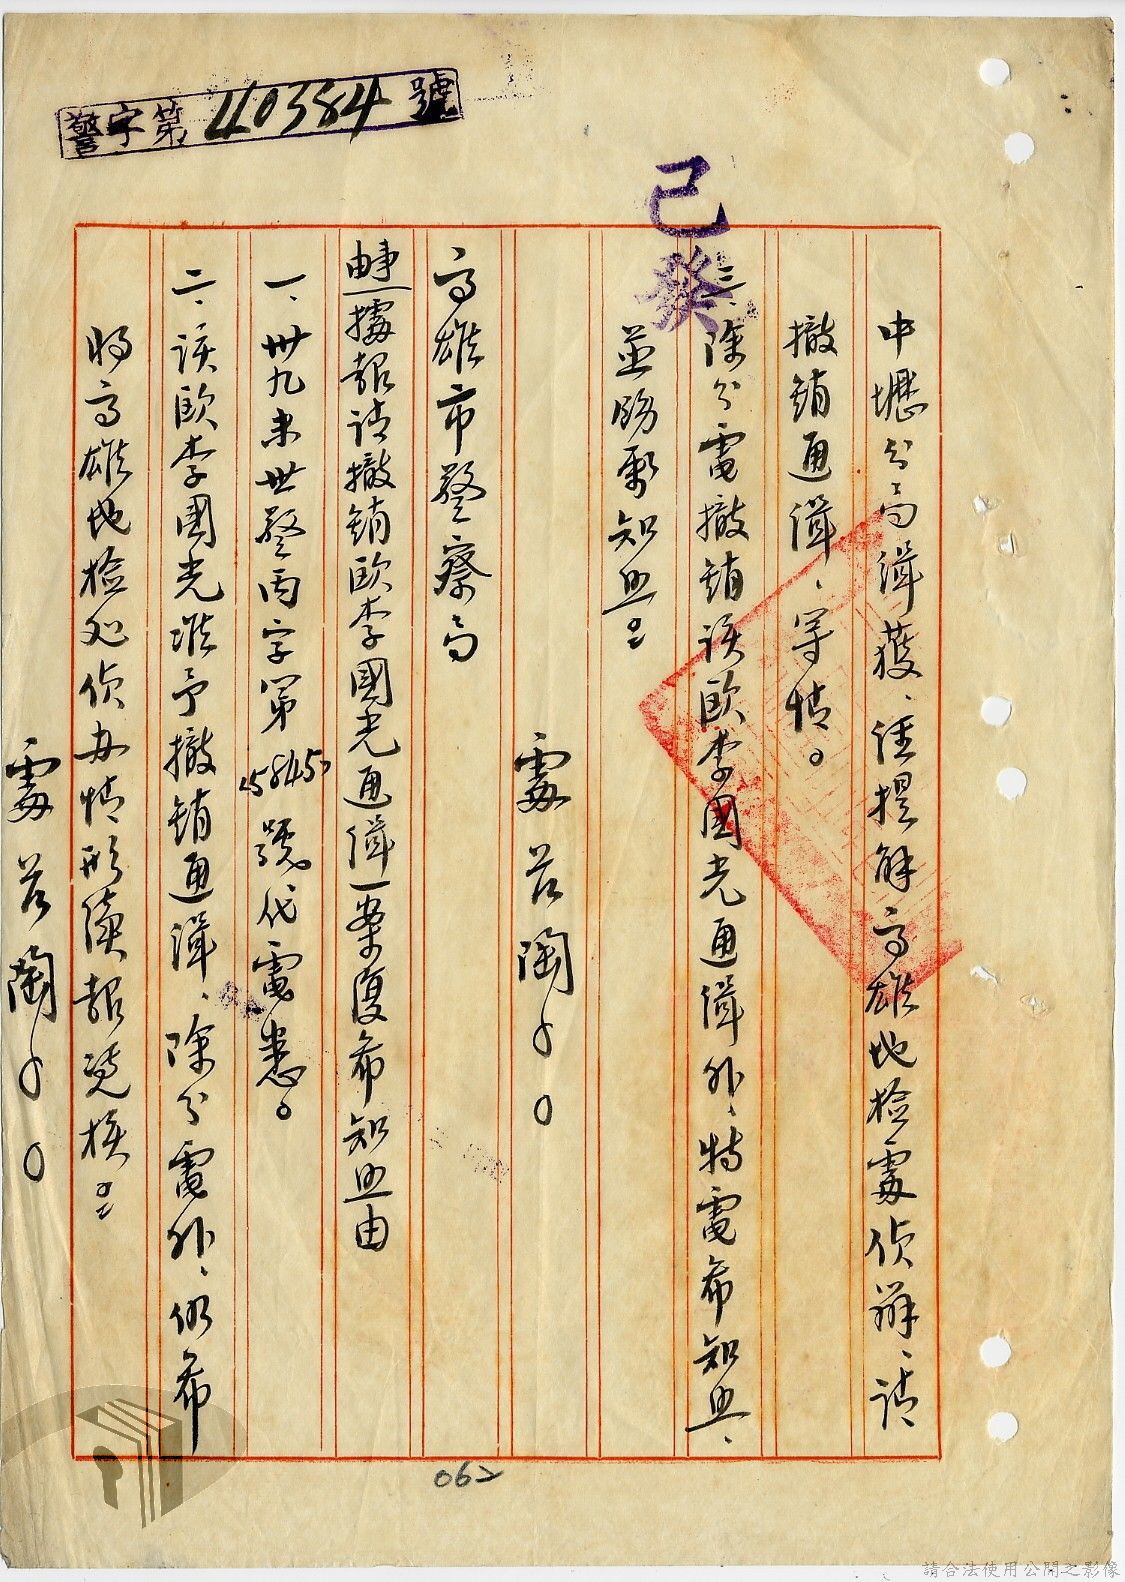 警字第40384號
已發
中壢分局緝獲、經提解高雄地檢處偵辦、請
撤銷通緝、等情。
三、除分電撤銷該歐李國光通緝外、特電希知照、
並飭屬知照
處長陶
高雄市警察局
事由 據報請撤銷歐李國光通緝一案復希知照由
一、卅九未世警丙字第 號代電悉。
二、該歐李國光准予撤銷通緝、除分電外、仍希
將高雄地檢処偵办情形續報憑核
處長陶
062
請合法使用公開之影像